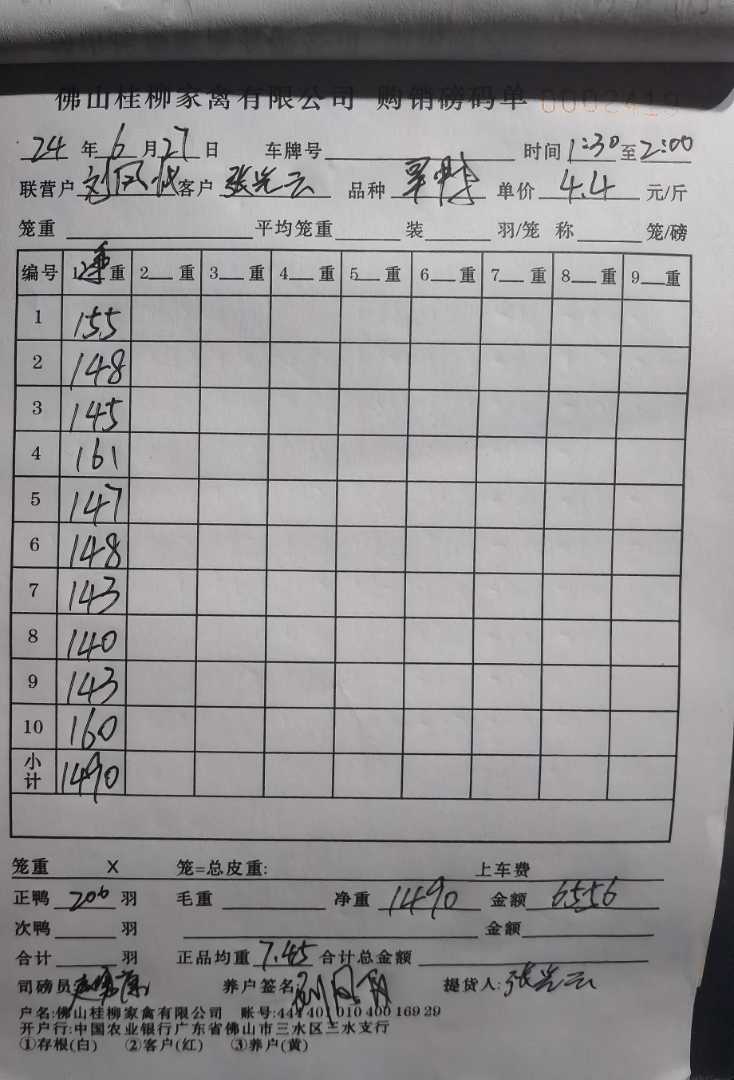 佛山桂柳家禽有限公司 购销磅码单 0002419
24 年 6 月 27 日 车牌号 时间 1:30 至 2:00
联营户 刘凤 客户 张光云 品种 单价 4.4 元/斤
笼重 平均笼重 装 羽/笼 称 笼/磅
编号 1 净 重 2 重 3 重 4 重 5 重 6 重 7 重 8 重 9 重
1 155
2 148
3 145
4 161
5 147
6 148
7 143
8 140
9 143
10 160
小计 1490
笼重 X 笼=总皮重: 上车费
正鸭 200 羽 毛重 净重 1490 金额 6556
次鸭 羽 金额
合计 羽 正品均重 7.45 合计总金额
司磅员 养户签名 刘凤 提货人: 张光云
户名:佛山桂柳家禽有限公司 账号:444 401 010 400 169 29
开户行:中国农业银行广东省佛山市三水区三水支行
①存根(白) ②客户(红) ③养户(黄)